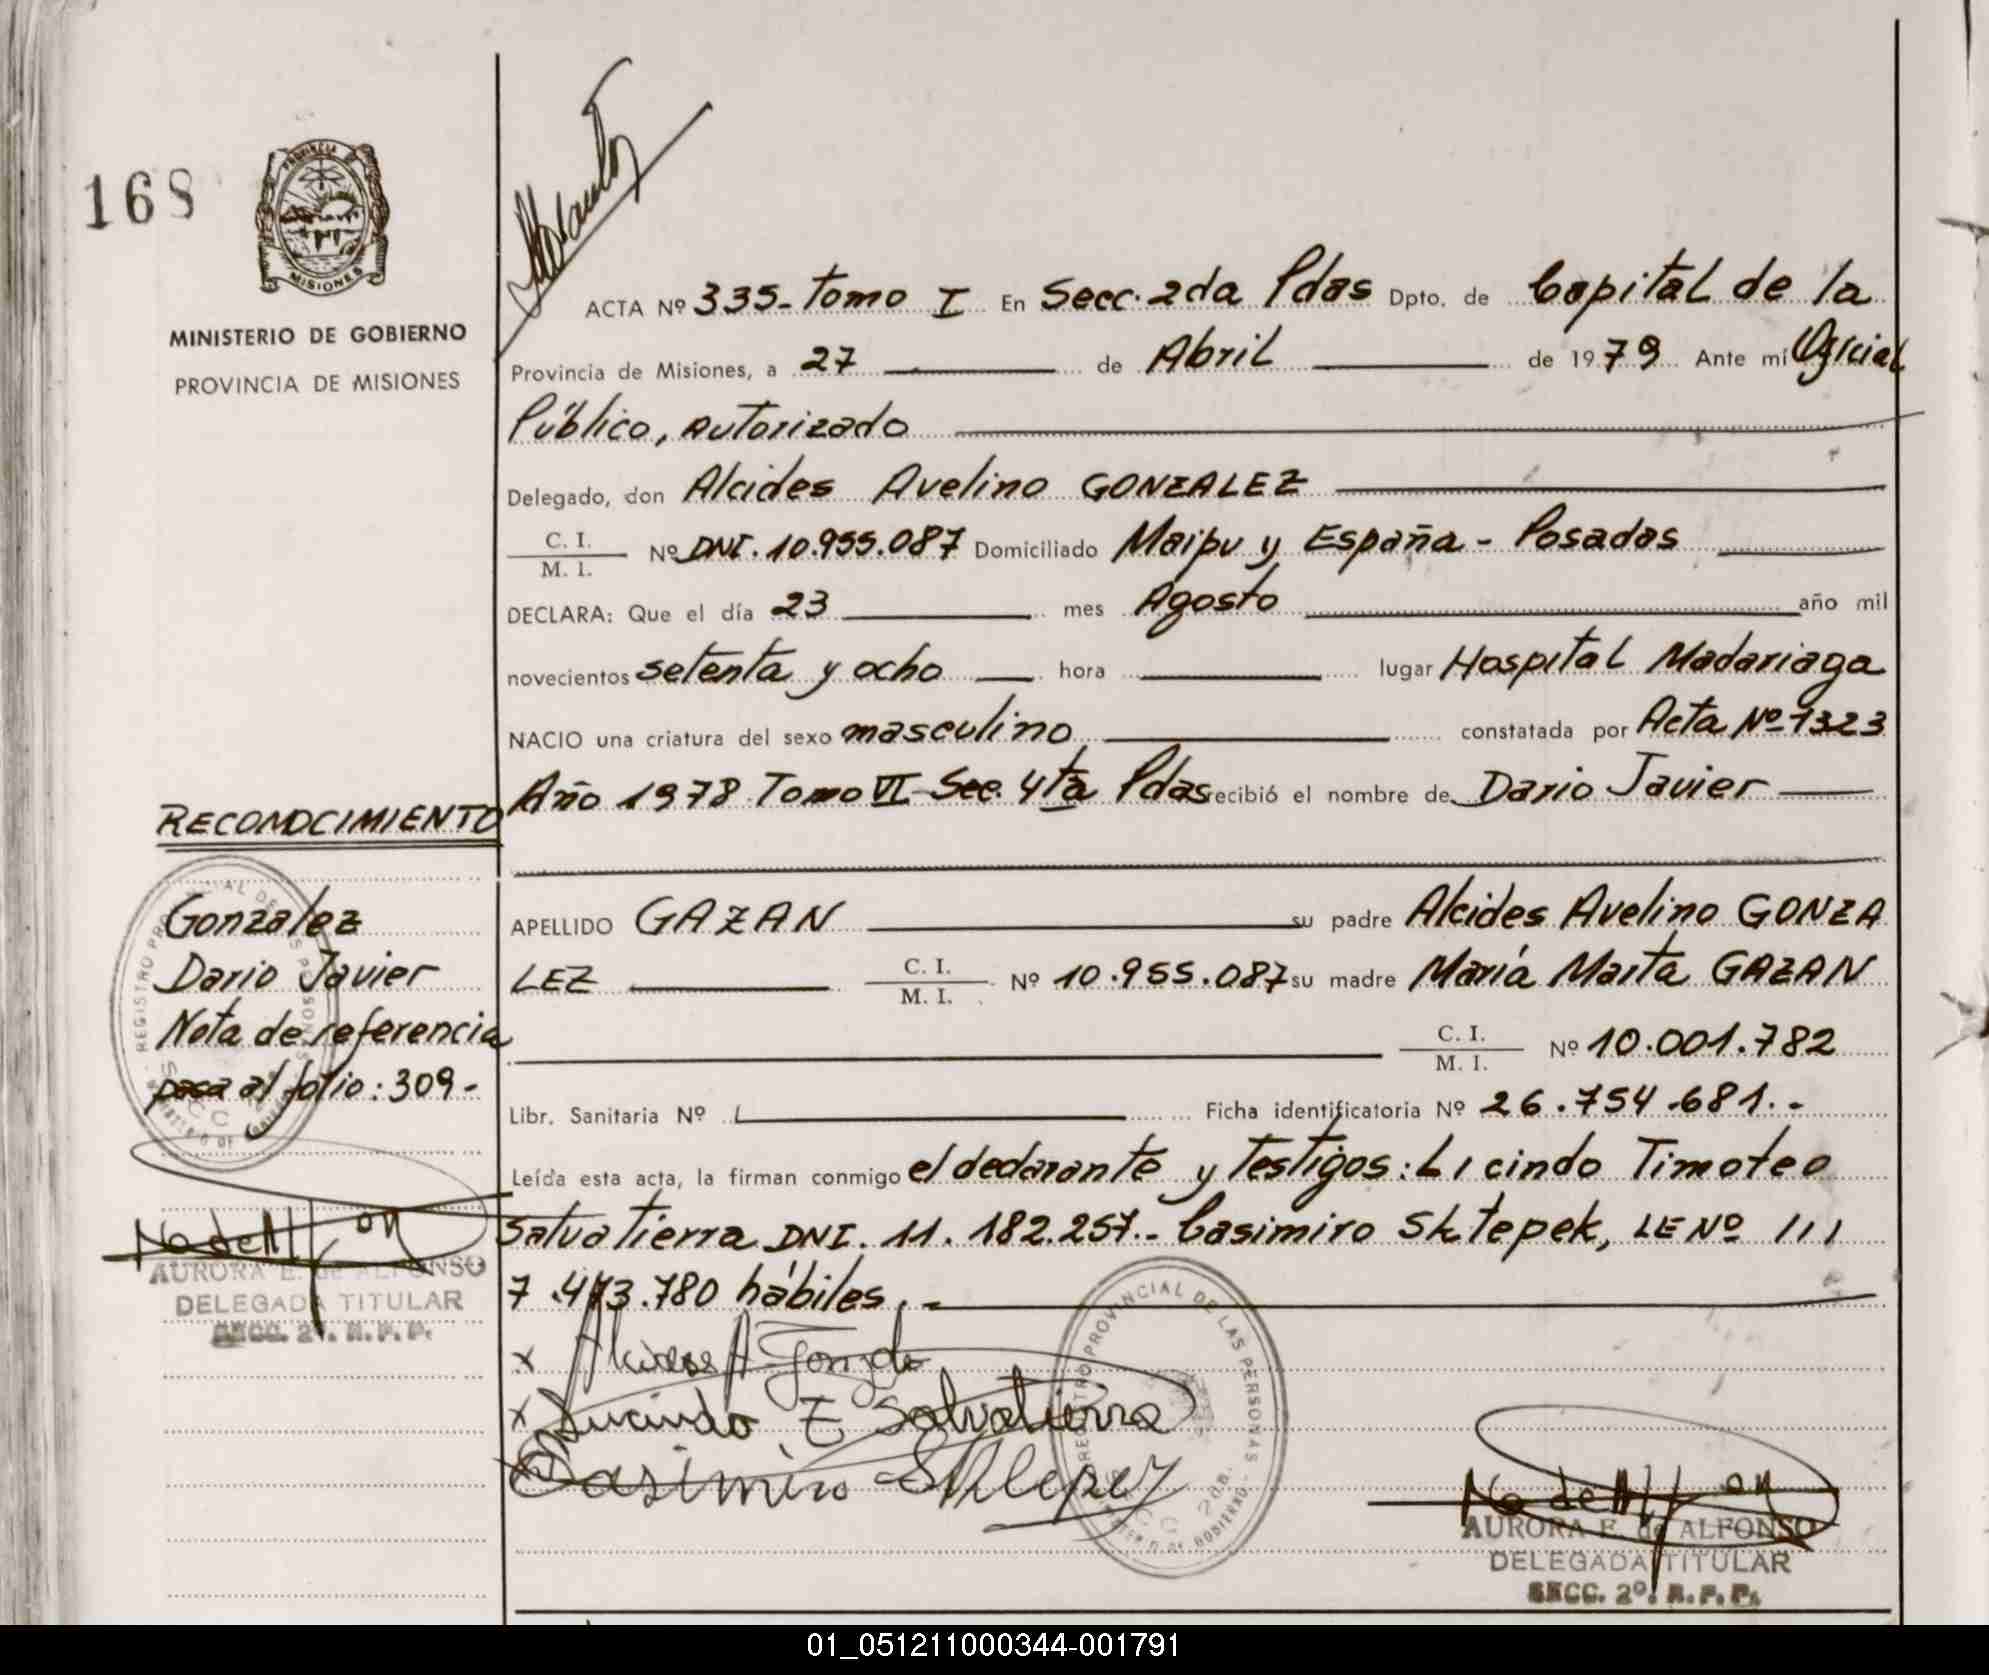 168
PROVINCIA DE
MISIONES
MINISTERIO DE GOBIERNO
PROVINCIA DE MISIONES
ACTA Nº 335- Tomo I En Secc. 2da Pdas Dpto. de Capital de la
Provincia de Misiones, a 27 de Abril de 1979 Ante mí Oficial
Público, autorizado
Delegado, don Alcides Avelino GONZALEZ
C. I.
M. I. Nº DNI. 10.955.087 Domiciliado Maipu y España - Posadas
DECLARA: Que el día 23 mes Agosto año mil
novecientos setenta y ocho hora lugar Hospital Madariaga
NACIO una criatura del sexo masculino constatada por Acta Nº 1323
Año 1978 Tomo VI Sec. 4ta Pdas recibió el nombre de Dario Javier
RECONOCIMIENTO
Gonzalez
Dario Javier
Nota de referencia
pasa al folio: 309-
AURORA E. de ALFONSO
DELEGADA TITULAR
SECC. 2º. R. P. P.
APELLIDO GAZAN su padre Alcides Avelino GONZA
LEZ C. I.
M. I. Nº 10.955.087 su madre María Marta GAZAN
C. I.
M. I. Nº 10.001.782
Libr. Sanitaria Nº Ficha identificatoria Nº 26.754.681.-
Leída esta acta, la firman conmigo el declarante y Testigos: Licindo Timoteo
Salvatierra DNI. 11.182.257.- Casimiro Sktepek, LE Nº 111
7.473.780 hábiles.-
x Alcides A Gonzale
x Lucindo T Salvatierra
Casimiro
REGISTRO PROVINCIAL DE LAS PERSONAS
SECC 2da.
MINISTERIO DE GOBIERNO
AURORA E. de ALFONSO
DELEGADA TITULAR
SECC. 2º. R. P. P.
01_051211000344-001791